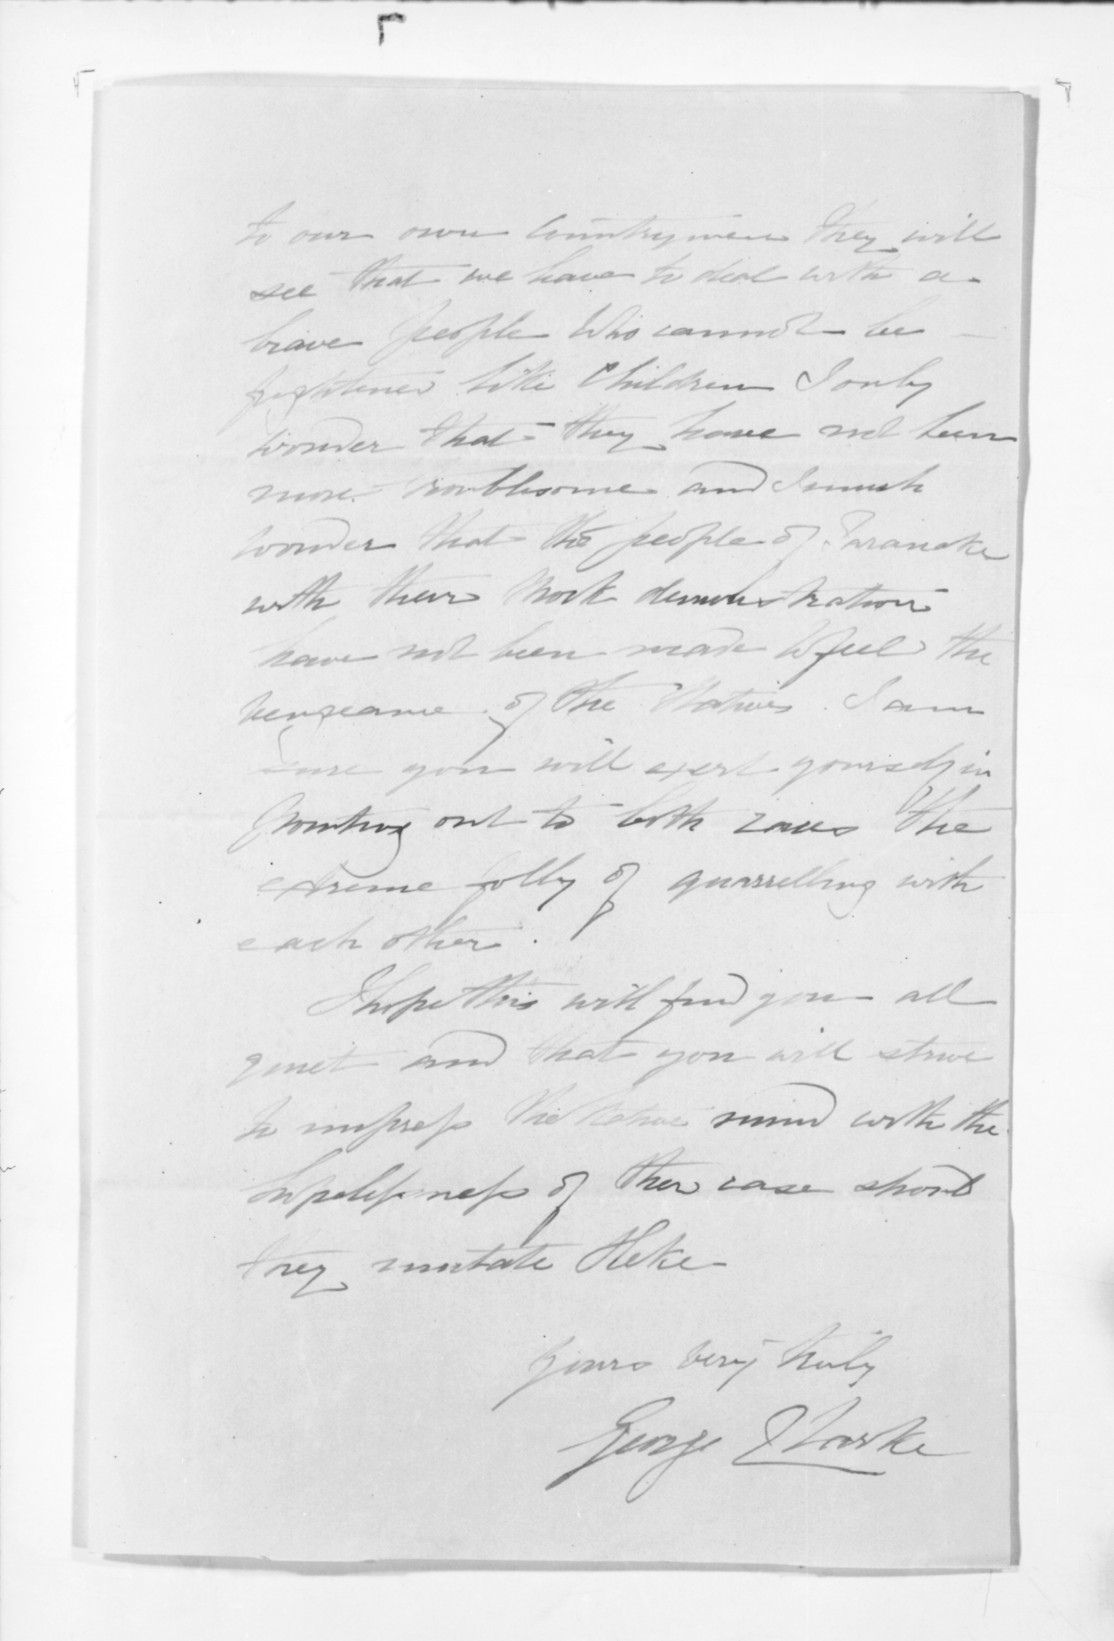 to our own Countrymen they will
see that we have to deal with a
brave people Who cannot be
frightened like Children I only
wonder that they have not been
more troublesome and I much
wonder that the people of Taranake
with their Mock demonstration
have not been made to feel the
vengeance of the Natives. I am
sure you will exert yourself in
pointing out to both races the
extreme folly of quarrelling with
each other.
I hope this will find you all
quiet and that you will strive
to impress the Native mind with the
hopelessness of their case should
they imitate Heke
Yours very truly
George Clarke